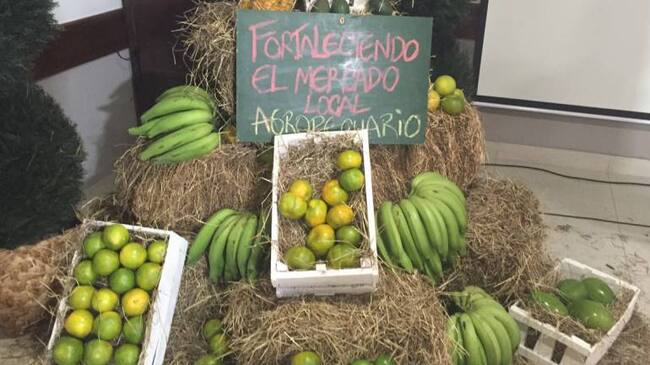 FORTALECIENDO
EL MERCADO
LOCAL
AGROPECUARIO